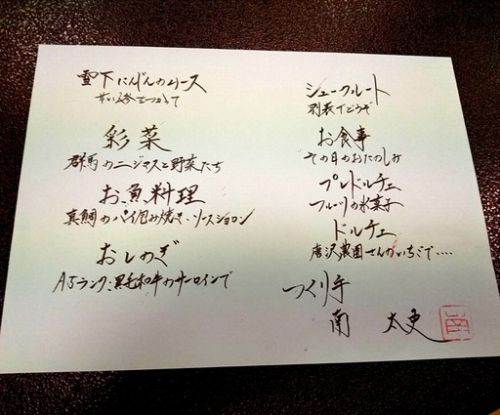 雪下にんじんのムース
甘い
彩菜
群馬のニジマスと野菜たち
お魚料理
真鯛のパイ包み焼き・ソースショロン
おしのぎ
A5ランク黒毛和牛のサーロインで
シュークルート
別表でどうぞ
お食事
その日のおたのしみ
プレドルチェ
フルーツの氷菓子
ドルチェ
唐沢農園さんのいちごで....
つくり手
南 太史
南